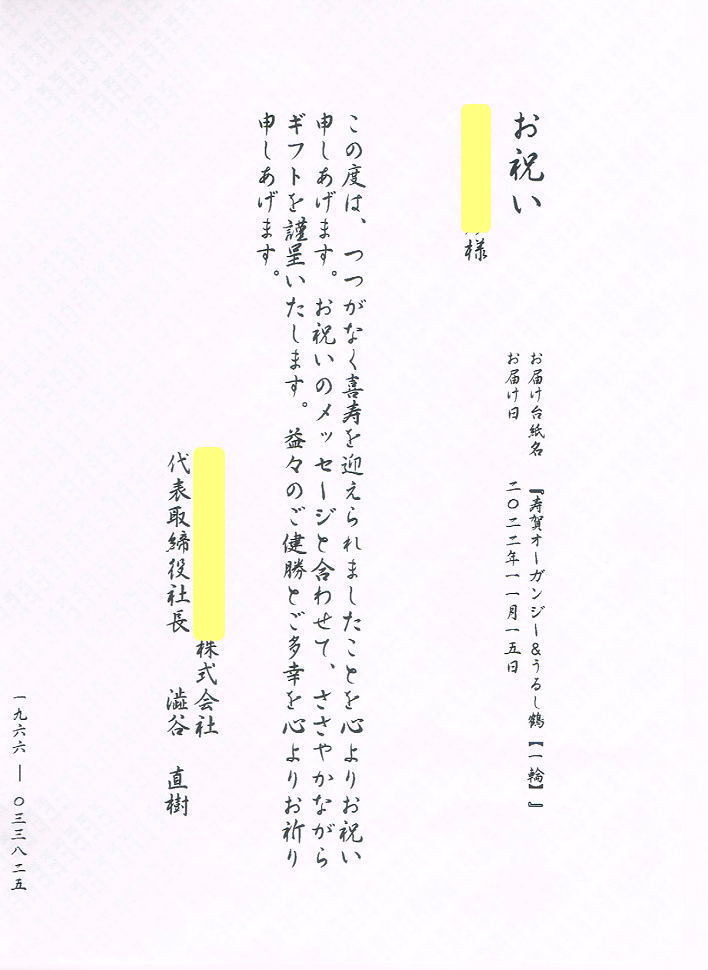 お祝い
お届け台紙名 『寿賀オーガンジー＆うるし鶴【一輪】』
お届け日 二〇二二年一一月一五日
様
この度は、つつがなく喜寿を迎えられましたことを心よりお祝い
申しあげます。お祝いのメッセージと合わせて、ささやかながら
ギフトを謹呈いたします。益々のご健勝とご多幸を心よりお祈り
申しあげます。
株式会社
代表取締役社長 澁谷 直樹
一九六六 ― 〇三三八二五